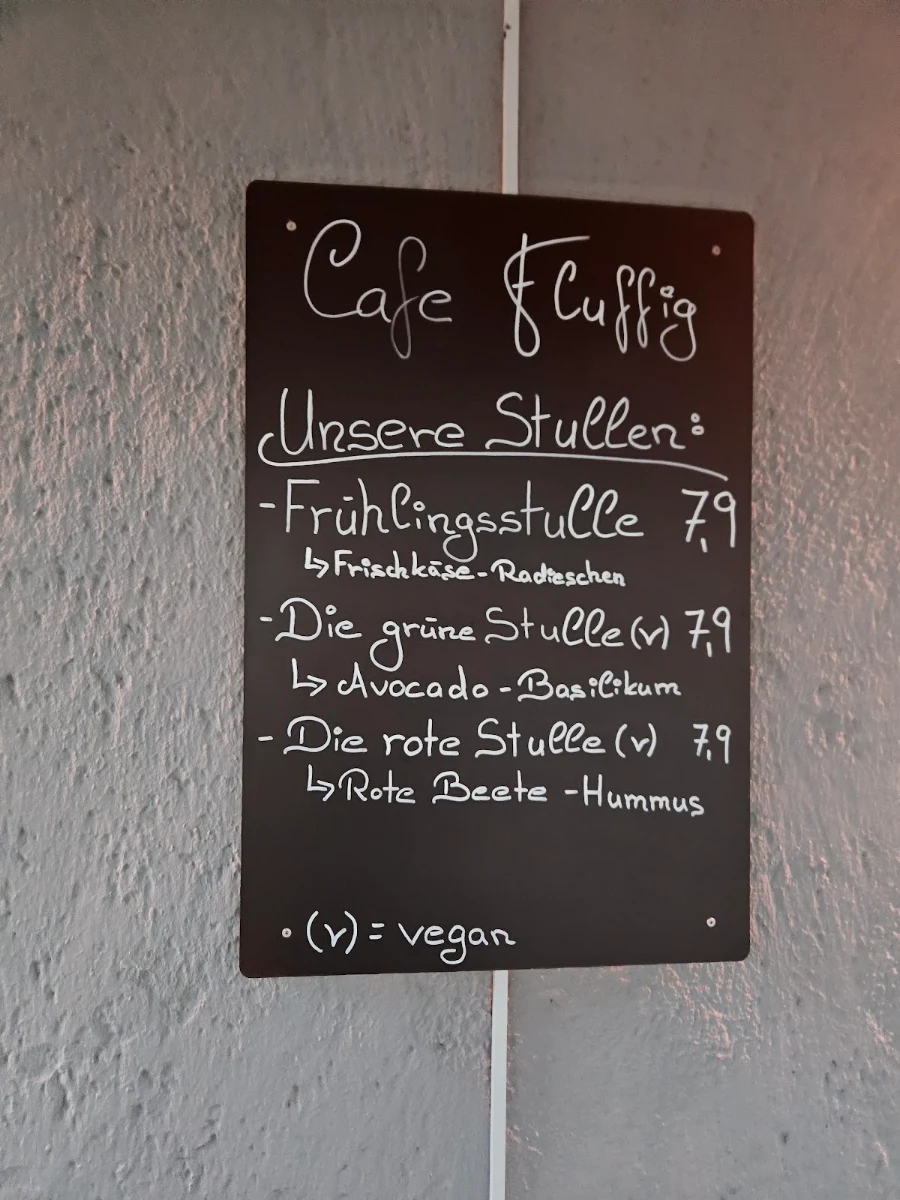 Cafe Fluffig
Unsere Stullen:
- Frühlingsstulle 7,9
↳ Frischkäse - Radieschen
- Die grüne Stulle (v) 7,9
↳ Avocado - Basilikum
- Die rote Stulle (v) 7,9
↳ Rote Beete - Hummus
(v) = vegan